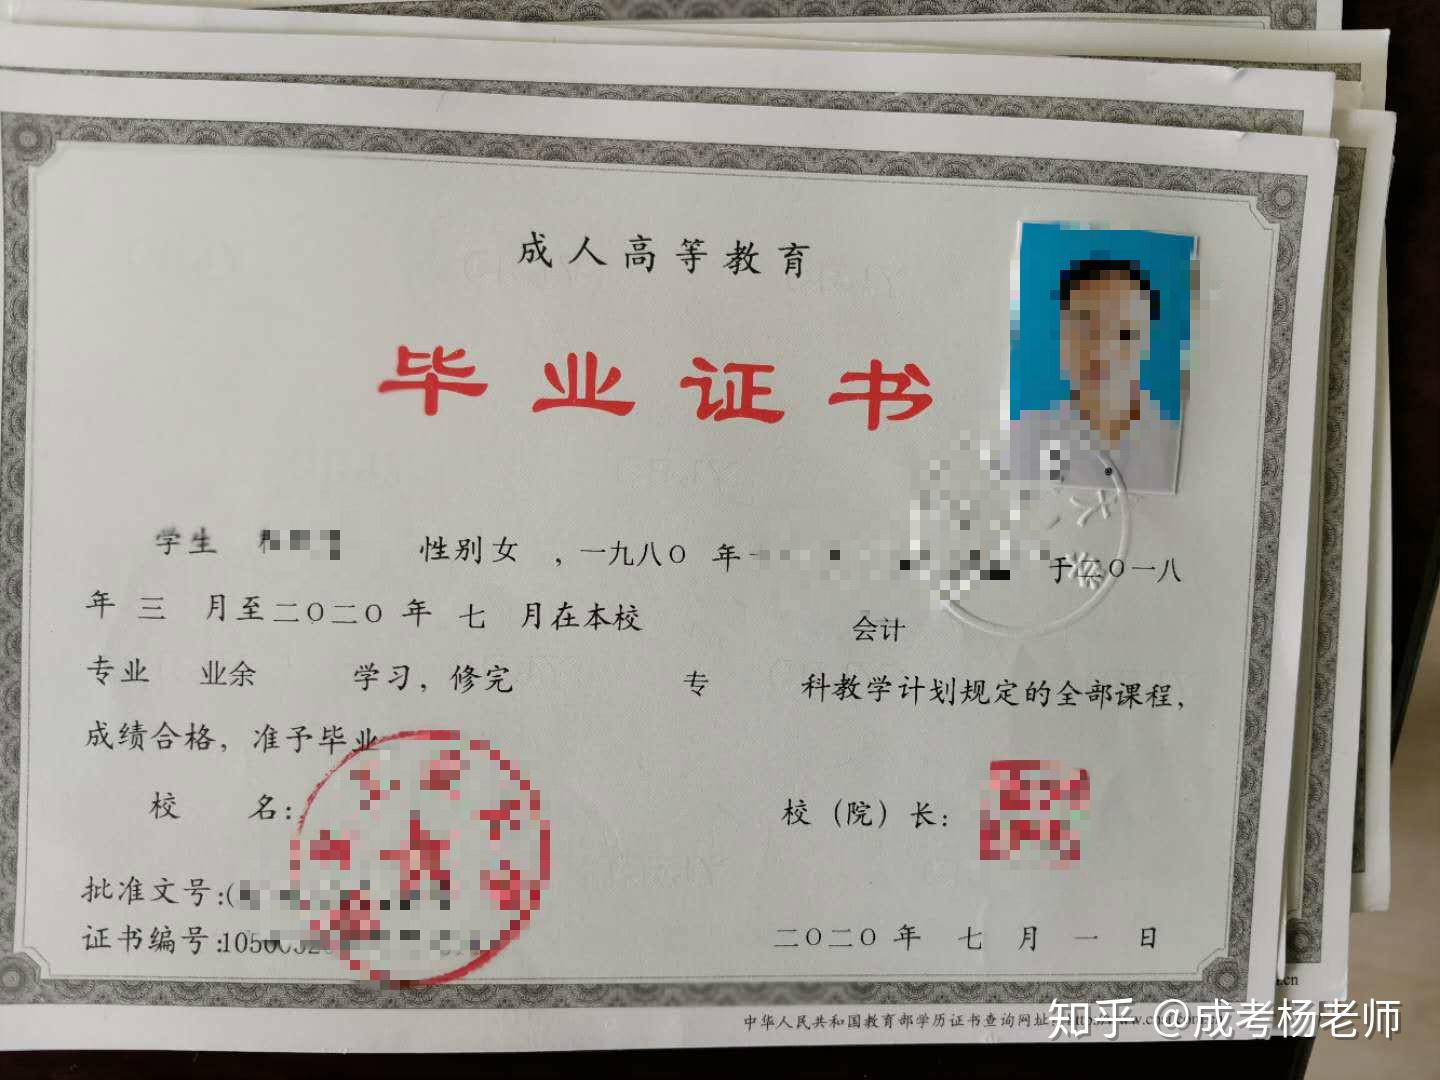 成人高等教育
毕业证书
学生 性别女 ，一九八〇 年 于二〇一八
年 三 月至二〇二〇 年 七 月在本校 会计
专业 业余 学习，修完 专 科教学计划规定的全部课程，
成绩合格，准予毕业
校 名： 校（院）长：
批准文号：(
证书编号：105
二〇二〇 年 七 月 一 日
中华人民共和国教育部学历证书查询网址
.cn
知乎 @成考杨老师